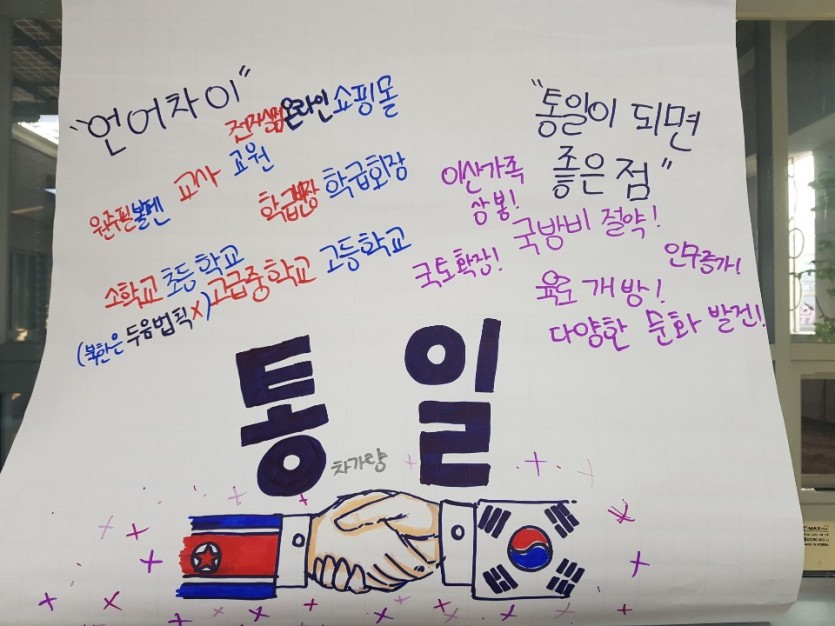 "언어차이"
전자상점 온라인 쇼핑몰
교사 교원
원주필 볼펜
학급반장 학급회장
소학교 초등학교
고급중학교 고등학교
(북한은 두음법칙X)
"통일이 되면
좋은 점"
이산가족
상봉!
국방비 절약!
국토확장!
인구증가!
육로 개방!
다양한 문화 발전!
통일
차가량